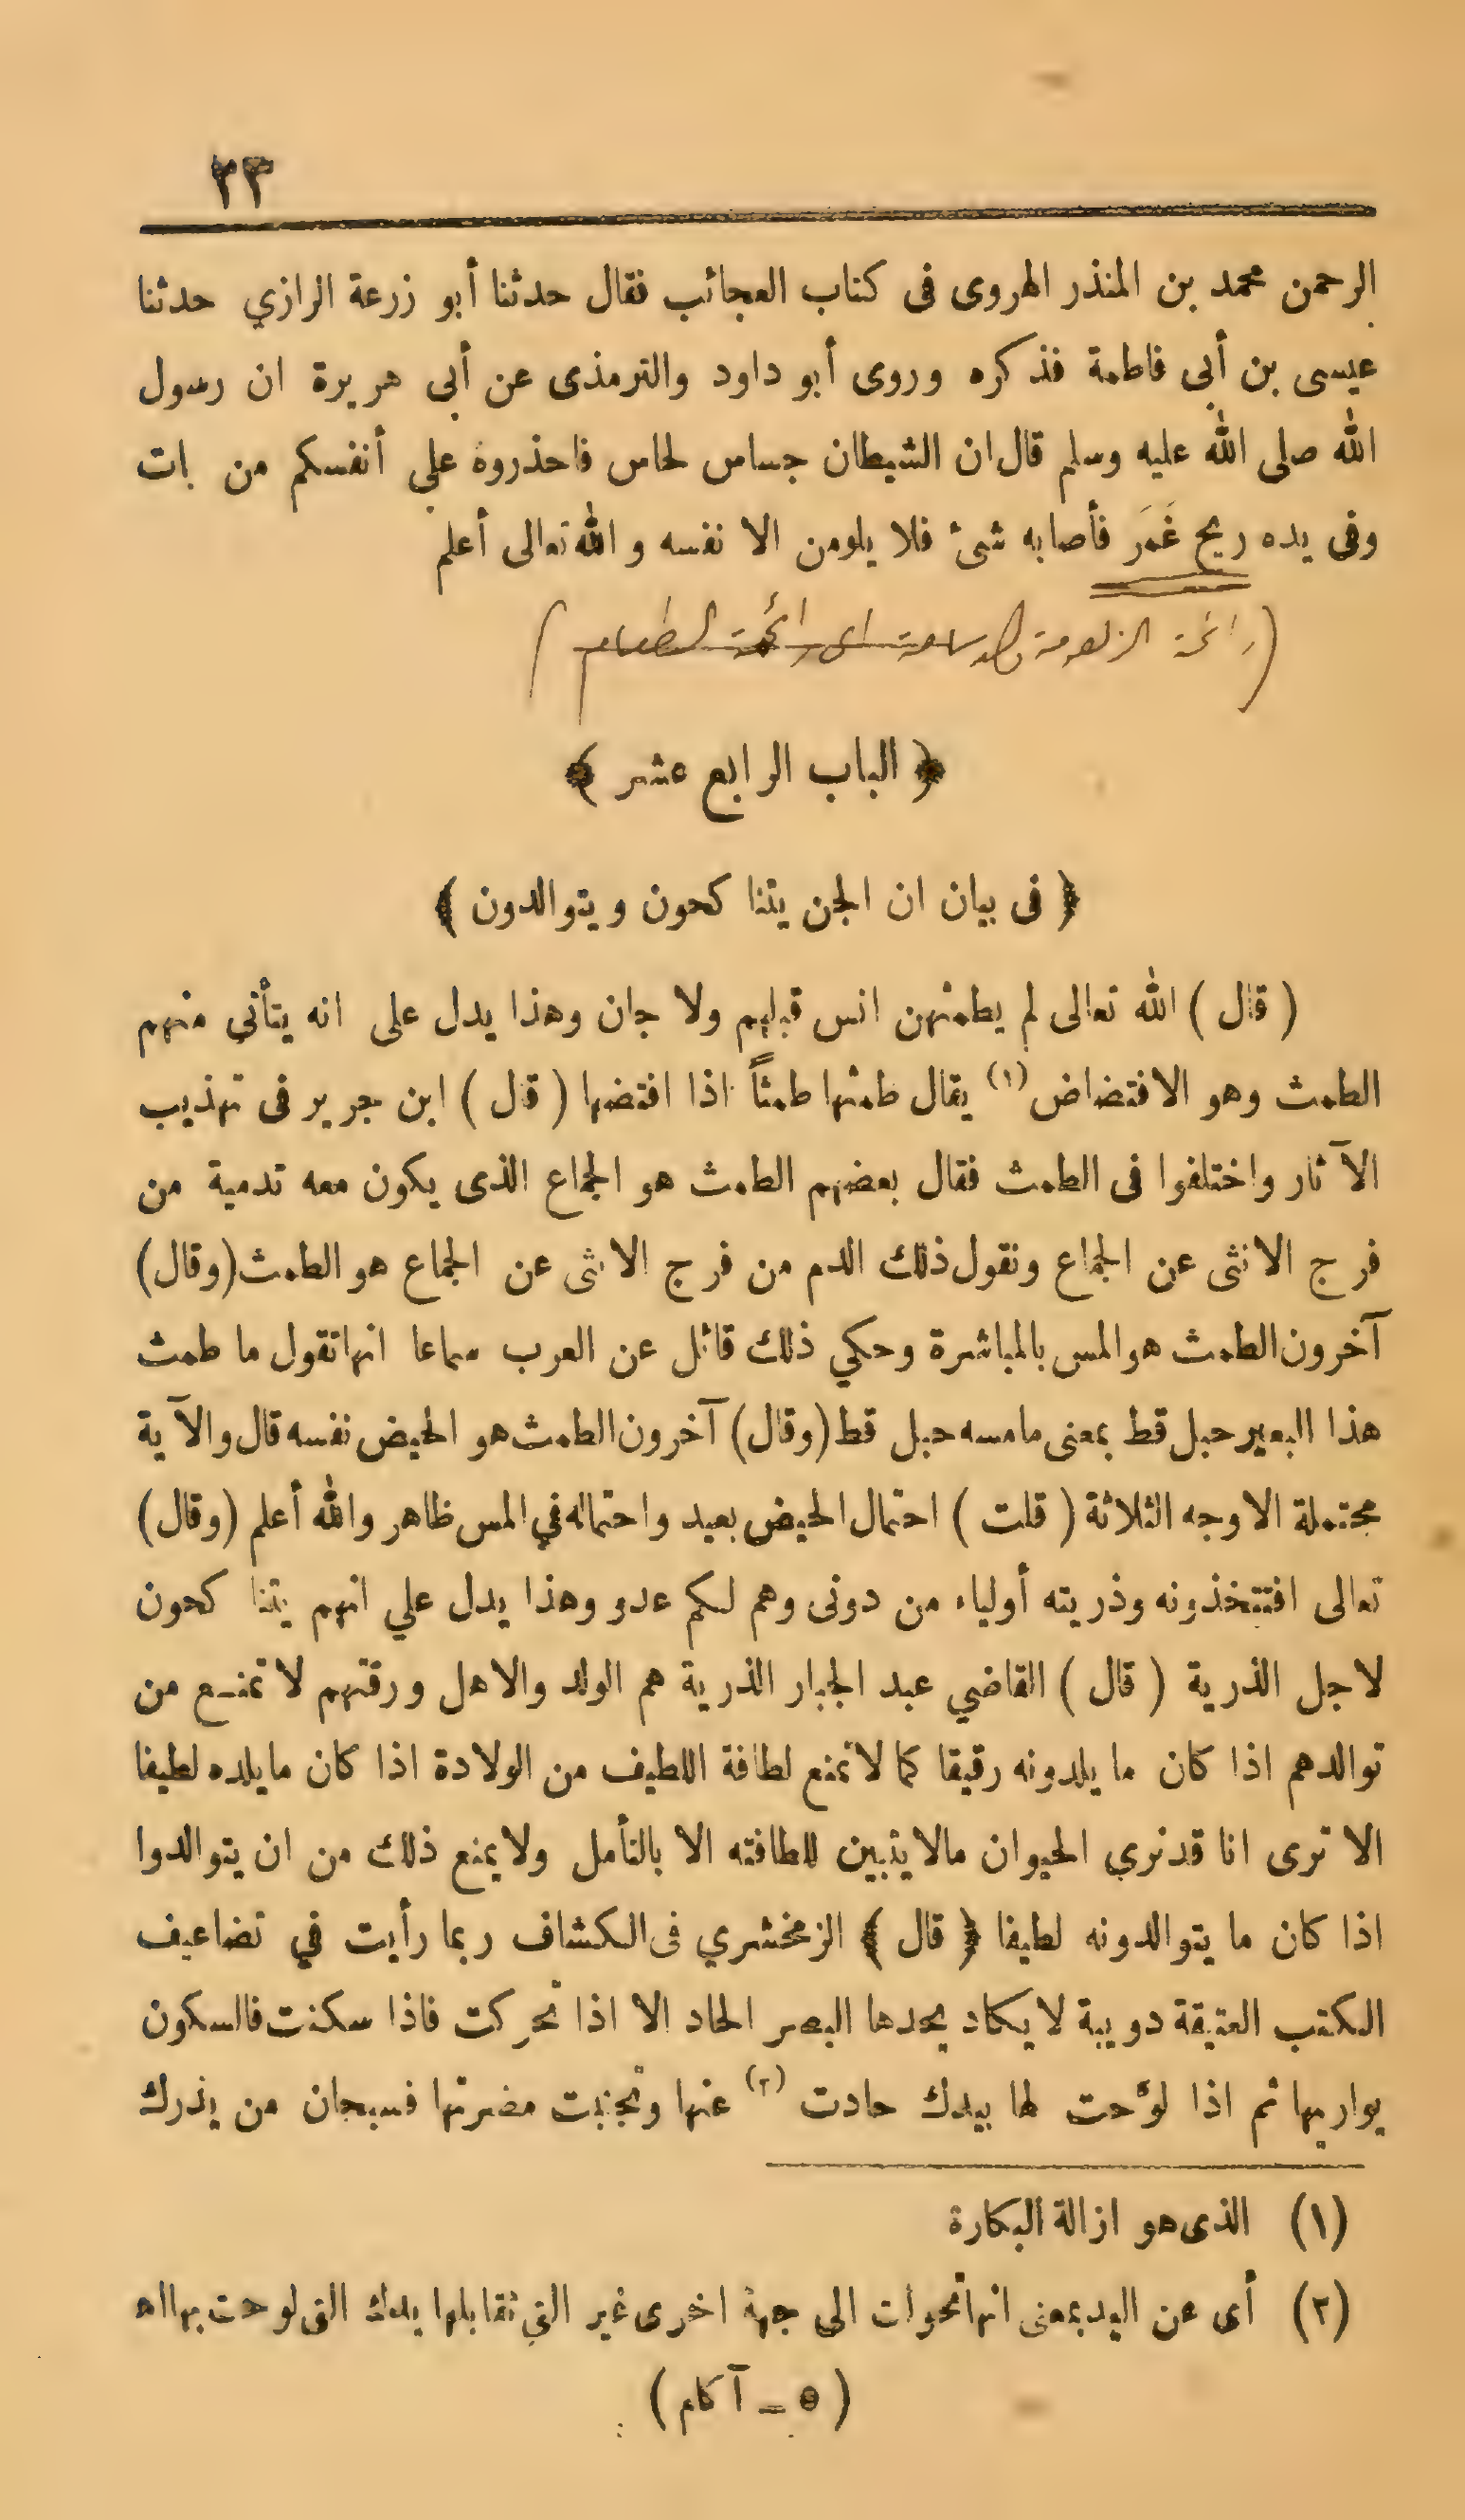 ٣٣
الرحمن محمد بن المنذر الهروى فى كتاب العجائب فقال حدثنا أبو زرعة الرازي حدثنا
عيسى بن أبى فاطمة فذكره وروى أبو داود والترمذى عن أبى هريرة ان رسول
الله صلى الله عليه وسلم قال ان الشيطان جساس لحاس فاحذروه علي أنفسكم من بات
وفى يده ريح غَمَر فأصابه شئ فلا يلومن الا نفسه والله تعالى أعلم
(رائحة الزهومة
﴿ الباب الرابع عشر ﴾
﴿ فى بيان ان الجن يتنا كحون ويتوالدون ﴾
( قال ) الله تعالى لم يطمثهن انس قبلهم ولا جان وهذا يدل على انه يتأتى منهم
الطمث وهو الافتضاض (١) يقال طمثها طمثاً اذا افتضها ( قال ) ابن جرير فى تهذيب
الآثار واختلفوا فى الطمث فقال بعضهم الطمث هو الجماع الذى يكون معه تدمية من
فرج الانثى عن الجماع ونقول ذلك الدم من فرج الانثى عن الجماع هو الطمث (وقال)
آخرون الطمث هو المس بالمباشرة وحكي ذلك قائل عن العرب سماعا انها تقول ما طمث
هذا البعير حبل قط بمعنى ما مسه حبل قط (وقال) آخرون الطمث هو الحيض نفسه قال والآية
محتملة الاوجه الثلاثة ( قلت ) احتمال الحيض بعيد واحتماله في المس ظاهر والله أعلم (وقال)
تعالى افتتخذونه وذريته أولياء من دونى وهم لكم عدو وهذا يدل علي انهم يتنا كحون
لاجل الذرية ( قال ) القاضي عبد الجبار الذرية هم الولد والاهل ورقتهم لا تمنع من
توالدهم اذا كان ما يلدونه رقيقا كما لا تمنع لطافة اللطيف من الولادة اذا كان مايلده لطيفا
الا ترى انا قد نري الحيوان مالا يتبين للطافته الا بالتأمل ولا يمنع ذلك من ان يتوالدوا
اذا كان ما يتوالدونه لطيفا ﴿ قال ﴾ الزمخشري فى الكشاف ربما رأيت في تضاعيف
الكتب العتيقة دويبة لا يكاد يحدها البصر الحاد الا اذا تحركت فاذا سكنت فالسكون
يواريها ثم اذا لوّحت لها بيدك حادت (٢) عنها وتجنبت مضرتها فسبحان من يدرك
(١) الذى هو ازالة البكارة
(٢) أى عن اليد بمعنى انها تحولت الى جهة اخرى غير التي تقابلها يدك التى لوحت بها اه
( ٥ ــ آكام )